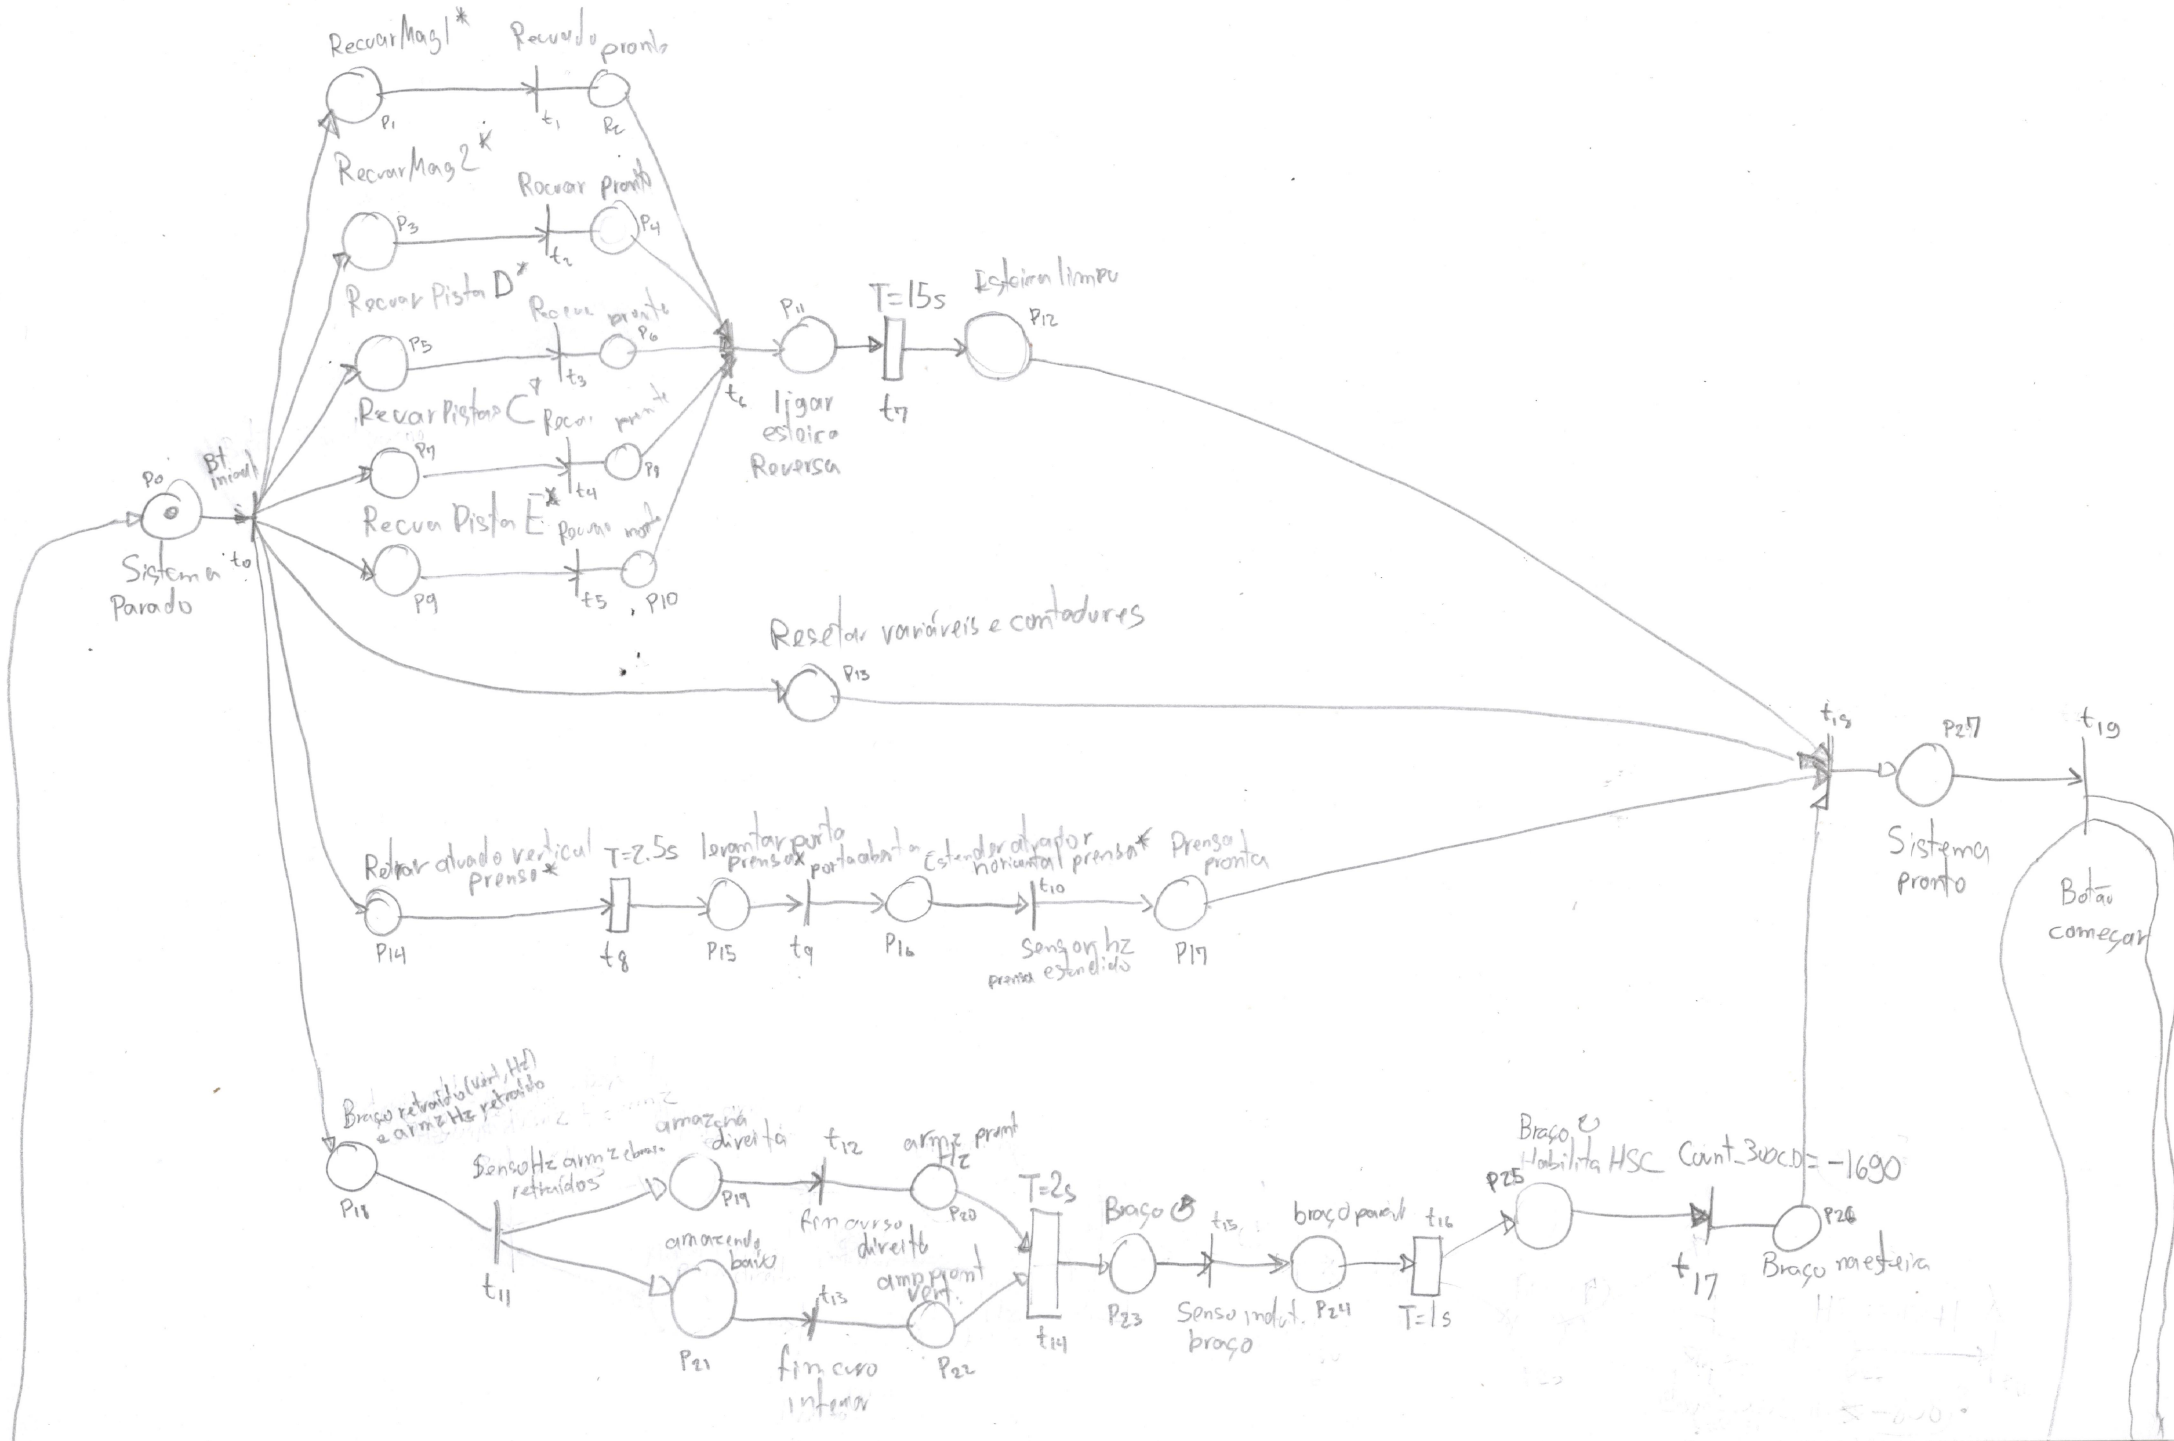 RecuarMag1*
Recuado pronto
P1
t1
P2
RecuarMag2*
Recuar pronto
P3
t2
P4
Recuar Pista D*
P5
t3
P6
Recuar Pista C*
P7
t4
P8
Recua Pista E*
P9
t5
P10
P0
Bt
t0
Sistema
Parado
t6
P11
ligar
esteira
Reversa
T=15s
t7
Esteira limpa
P12
Resetar variáveis e contadores
P13
t18
P27
Sistema
pronto
t19
Botão
começar
Retrair atuado vertical
prensa*
P14
T=2.5s
t8
levantar porta
prensa*
P15
porta aberta
t9
Estender atuador
horizontal prensa*
P16
t10
Sensor hz
prensa estendido
Prensa
pronta
P17
Braço retraído (vert, Hz)
e armz Hz retraído
P18
Senso Hz armz e braço
retraídos
t11
amazena
direita
P19
t12
fin curso
direito
armz pront
Hz
P20
amazendo
baixo
P21
t13
fim curso
inferior
P22
vert.
T=2s
t14
Braço
P23
t15
Senso indut.
braço
braço parado
P24
t16
T=1s
Braço
Habilita HSC
P25
= -1690
t17
P26
Braço na esteira